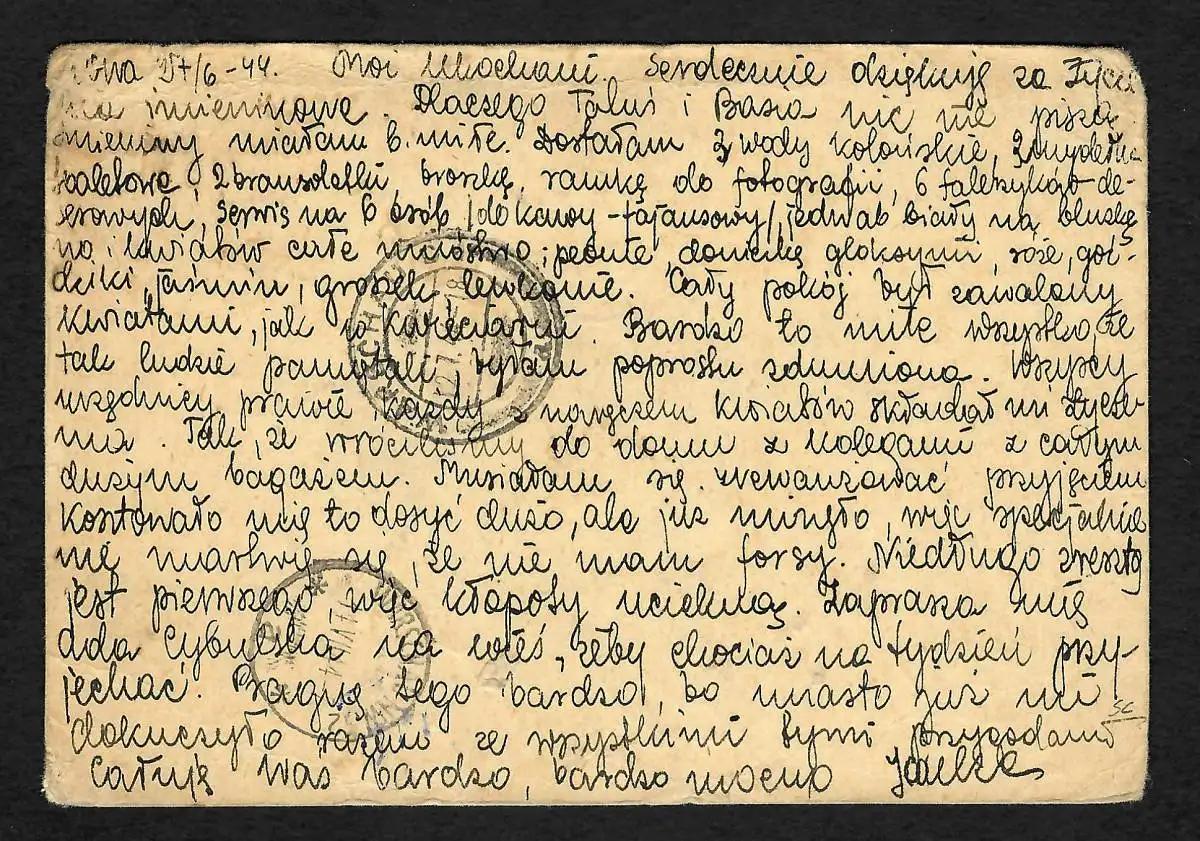 27/6-44. Moi Ukochani. Serdecznie dziękuję za życze
nia imieninowe. Dlaczego Taluś i Basia nic nie piszą.
Imieniny miałam b. miłe. Dostałam 3 wody kolońskie, 3 mydełka
toaletowe, 2 bransoletki, broszkę, ramkę do fotografii, 6 talerzyków de-
serowych, serwis na 6 osób /do kawy - fajansowy/, jedwab biały na bluskę
no i kwiatów całe mnóstwo; peonie, doniczkę gloksynii, róże, goź-
dziki, jaśmin, groszek, lewkonie. Cały pokój był zawalony
kwiatami, jak w kwieciarni. Bardzo to miłe wszystko, że
tak ludzie pamiętali, byłam poprostu zdumiona. Wszyscy
urzędnicy prawie, każdy z naręczem kwiatów składał mi życze-
nia. Tak, że wróciliśmy do domu z kolegami z całym
dużym bagażem. Musiałam się zrewanżować przyjęciem
Kosztowało mię to dosyć dużo, ale już minęło, więc specjalnie
nie martwię się, że nie mam forsy. Niedługo zresztą
jest pierwszego, więc kłopoty ucieknā. Zaprasza mię
Ada Cybulska na wieś, żeby chociaż na tydzień przy-
jechać. Pragnę tego bardzo, bo miasto już mi
dokuczyło razem ze wszystkimi tymi przygodami
Całuję Was bardzo, bardzo mocno
SC